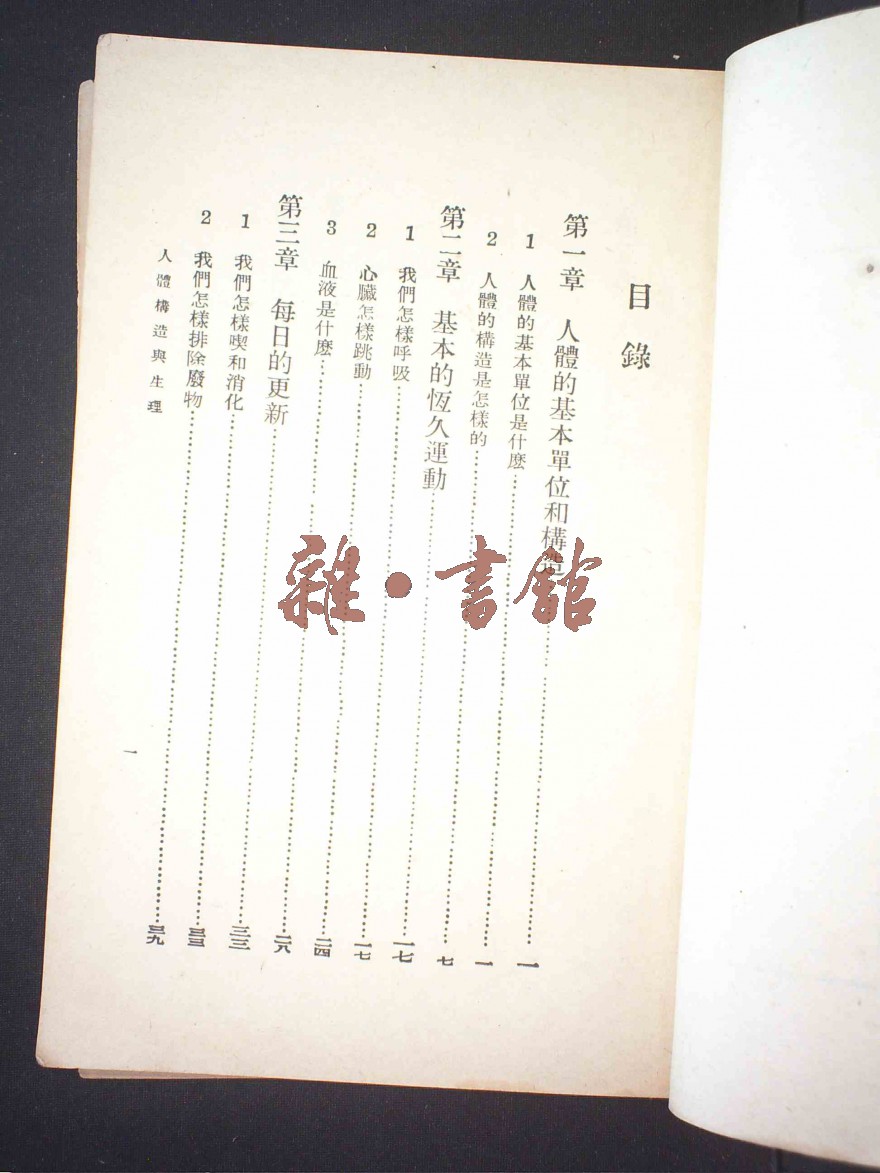 目錄
第一章 人體的基本單位和構造……一
1 人體的基本單位是什麼……一
2 人體的構造是怎樣的……七
第二章 基本的恆久運動……一七
1 我們怎樣呼吸……一七
2 心臟怎樣跳動……二四
3 血液是什麼……二八
第三章 每日的更新……三三
1 我們怎樣喫和消化……三三
2 我們怎樣排除廢物……三九
人體構造與生理
一
雜·書館